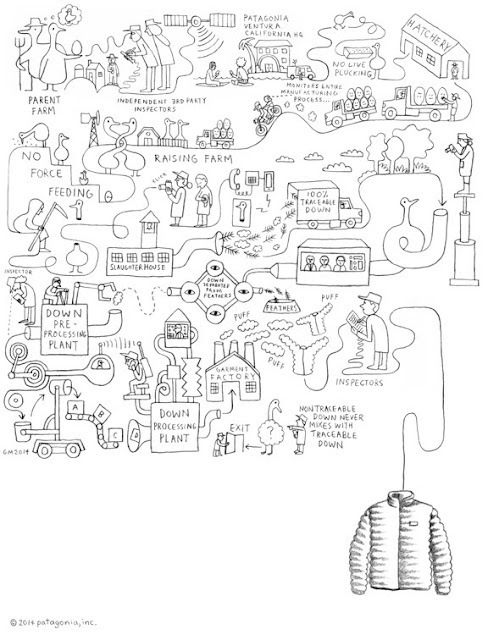 PATAGONIA
VENTURA
CALIFORNIA HQ
HATCHERY
NO LIVE
PLUCKING
PARENT
FARM
INDEPENDENT 3RD PARTY
INSPECTORS
MONITORS ENTIRE
MANUFACTURING
PROCESS...
NO
FORCE
FEEDING
RAISING FARM
100%
TRACEABLE
DOWN
SLAUGHTERHOUSE
INSPECTOR
DOWN
SEPARATED
FROM
FEATHERS
FEATHERS
PUFF
PUFF
PUFF
DOWN
PRE-
PROCESSING
PLANT
INSPECTORS
GARMENT
FACTORY
A
B
C
D
DOWN
PROCESSING
PLANT
EXIT
NONTRACEABLE
DOWN NEVER
MIXES WITH
TRACEABLE
DOWN
GM2014
© 2014 patagonia, inc.